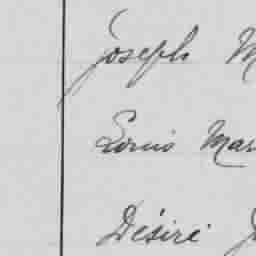 Joseph M
Louis Mar
Désiré J